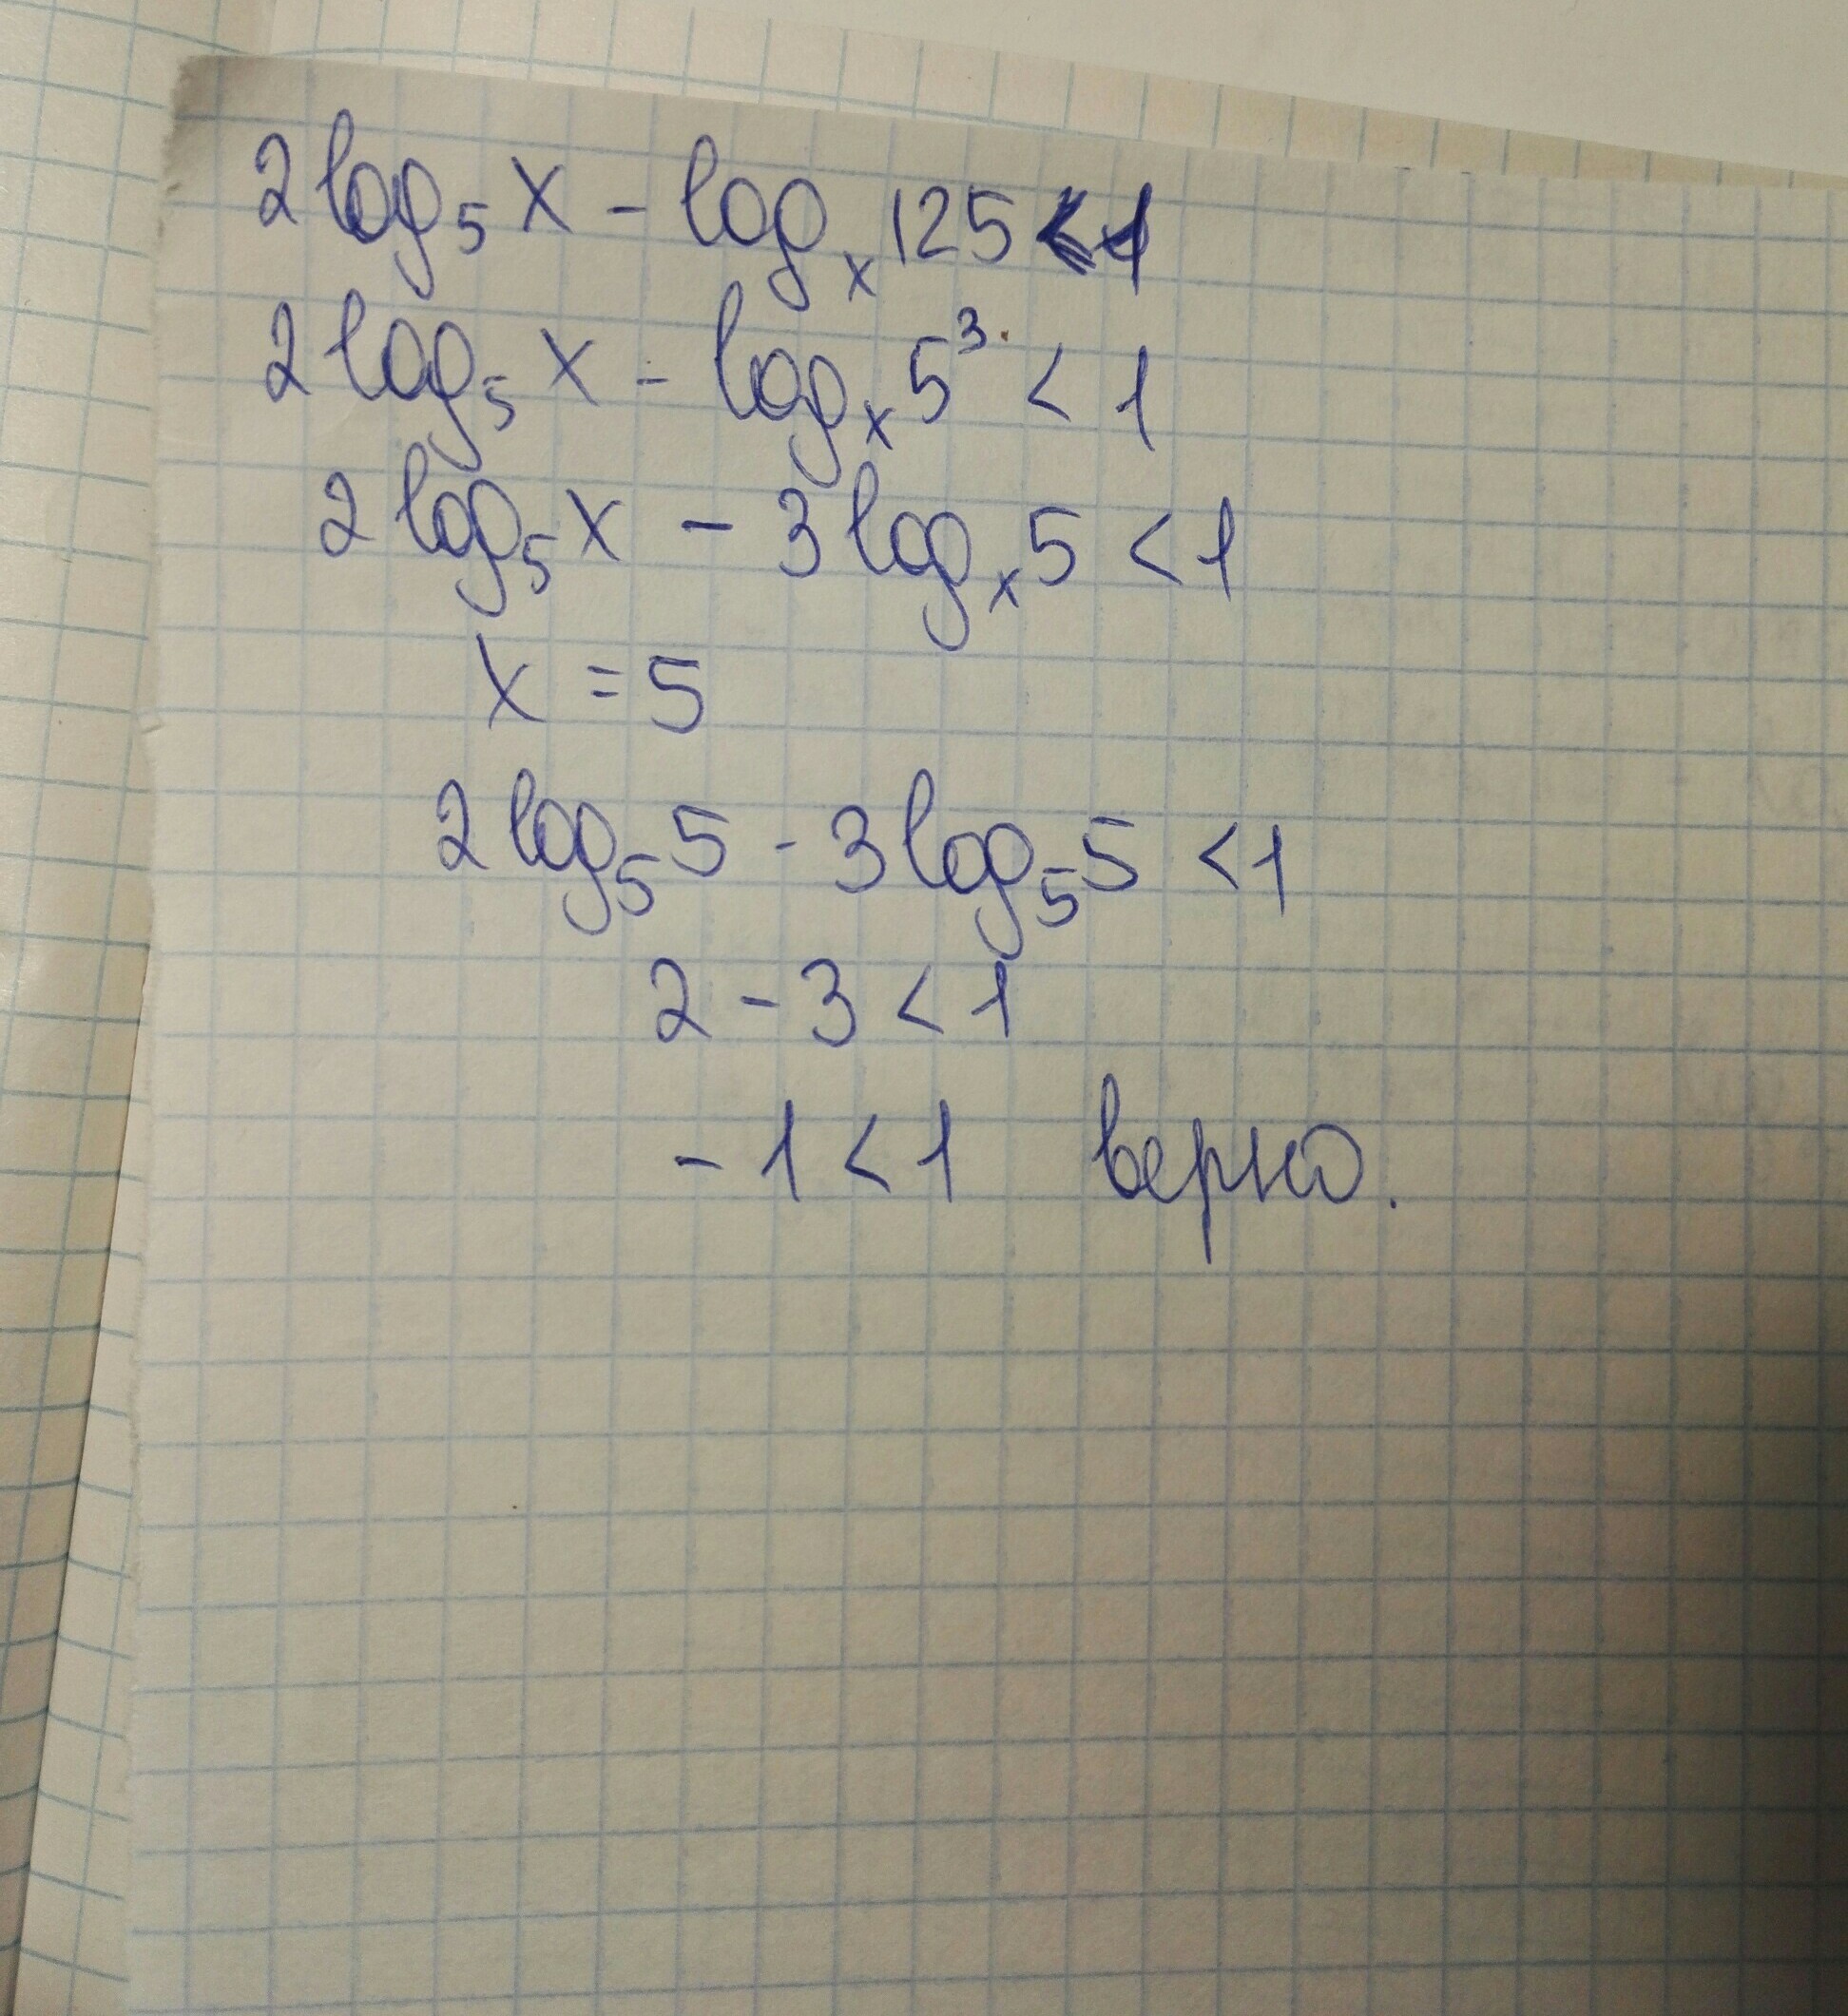 2log₅x - logₓ125 < 1
2log₅x - logₓ5³ < 1
2log₅x - 3logₓ5 < 1
x = 5
2log₅5 - 3log₅5 < 1
2 - 3 < 1
-1 < 1 верно.